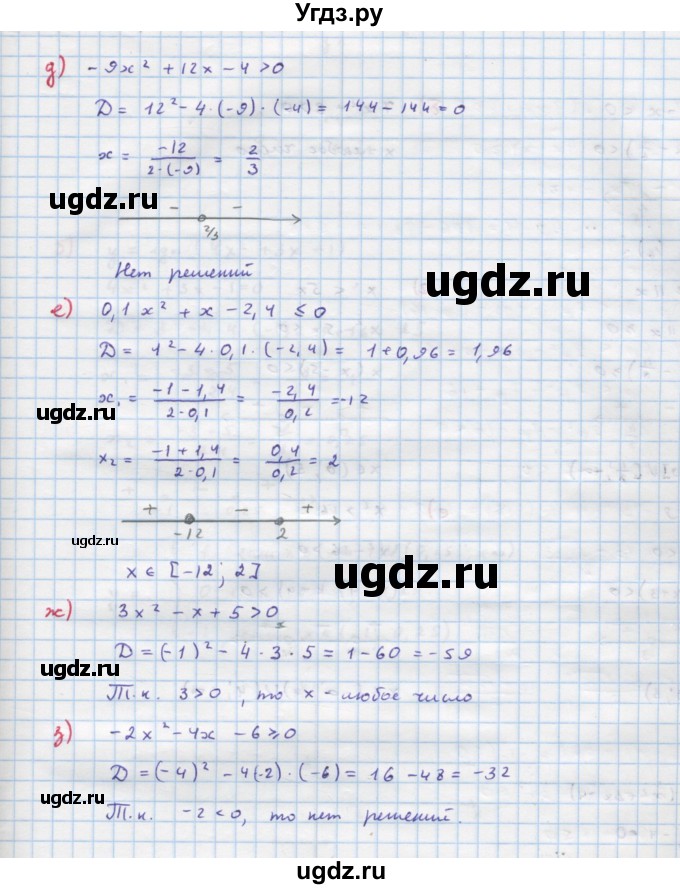 Угдз.ру
д) -9x² + 12x - 4 > 0
D = 12² - 4·(-9)·(-4) = 144 - 144 = 0
x = -12/2·(-9) = 2/3
ugdz.ru
- -
2/3
ugdz.ru
Нет решений
ugdz.ru
е) 0,1x² + x - 2,4 ≤ 0
D = 1² - 4·0,1·(-2,4) = 1 + 0,96 = 1,96
x₁ = -1-1,4/2·0,1 = -2,4/0,2 = -12
ugdz.ru
x₂ = -1+1,4/2·0,1 = 0,4/0,2 = 2
+ - +
-12 2
ugdz.ru
x ∈ [-12; 2]
ugdz.ru
ж) 3x² - x + 5 > 0
D = (-1)² - 4·3·5 = 1 - 60 = -59
ugdz.ru
Т.к. 3 > 0, то x - любое число
з) -2x² - 4x - 6 ≥ 0
D = (-4)² - 4(-2)·(-6) = 16 - 48 = -32
ugdz.ru
Т.к. -2 < 0, то нет решений.
ugdz.ru